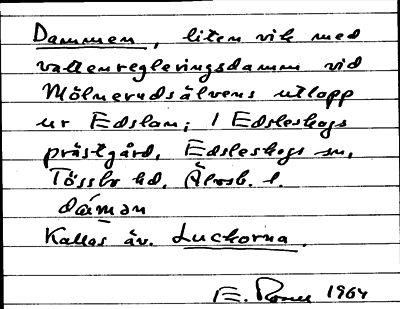 Dammen, liten vik med
vattenregleringsdamm vid
Mölnerudsälvens utlopp
ur Edslan; 1 Edsleskogs
prästgård, Edsleskogs sn,
Tössbo hd, Älvsb. l.
dáman
Kallas äv. Luckorna.
E. 1964